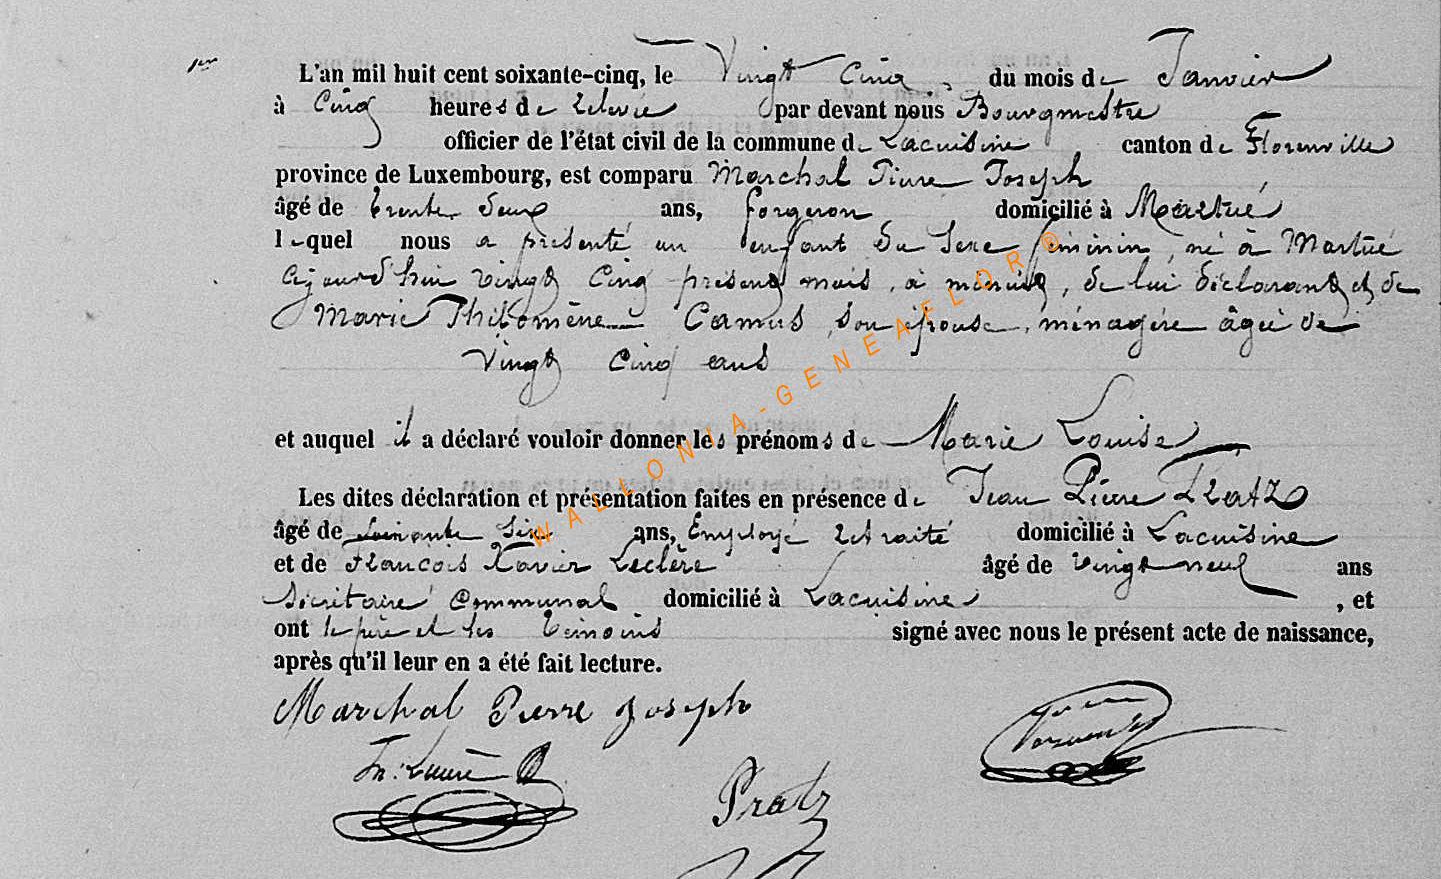 L'an mil huit cent soixante-cinq, le Vingt Cinq du mois de Janvier
à Cinq heures de relevée par devant nous Bourgmestre
officier de l'état civil de la commune de Lacuisine canton de Florenville
province de Luxembourg, est comparu Marchal Pierre Joseph
âgé de trente deux ans, forgeron domicilié à Martué
lequel nous a présenté un enfant du sexe féminin, né à Martué
aujourd'hui vingt cinq présent mois, à minuit, de lui déclarant et de
Marie Philomène Camus son épouse, ménagère âgée de
vingt cinq ans
et auquel il a déclaré vouloir donner les prénoms de Marie Louise
Les dites déclaration et présentation faites en présence de Jean Pierre Pratz
âgé de soixante six ans, Employé retraité domicilié à Lacuisine
et de François Xavier Leclère âgé de vingt neuf ans
Secrétaire Communal domicilié à Lacuisine, et
ont le père et les témoins signé avec nous le présent acte de naissance,
après qu'il leur en a été fait lecture.
Marchal Pierre Joseph
Pratz
WALLONIA-GENEAFLOR®